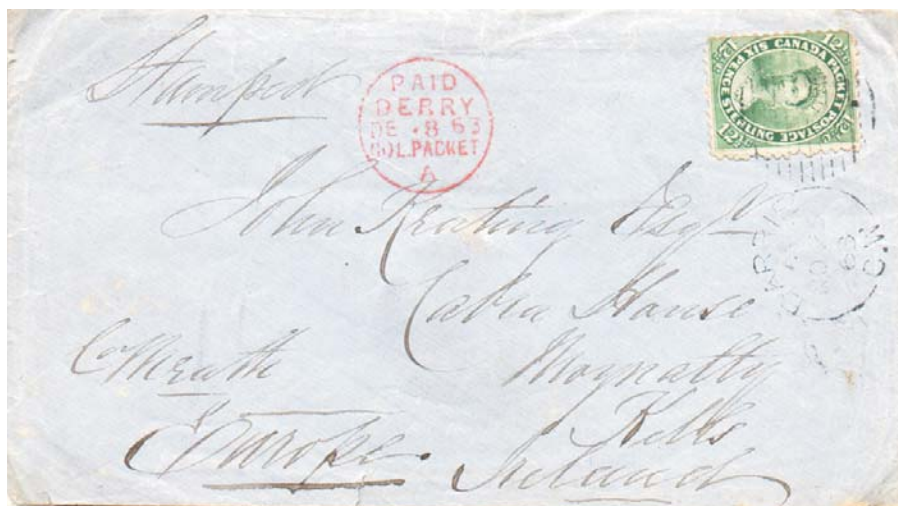 Stamped
PAID
DERRY
DE 8 63
COL.PACKET
A
CANADA PACKET POSTAGE
SIX PENCE STERLING
12½
12½
12½
12½
John Keating Esqr
Cabra House
Moynalty
Kells
Co Meath
Ireland
Europe.
C.W